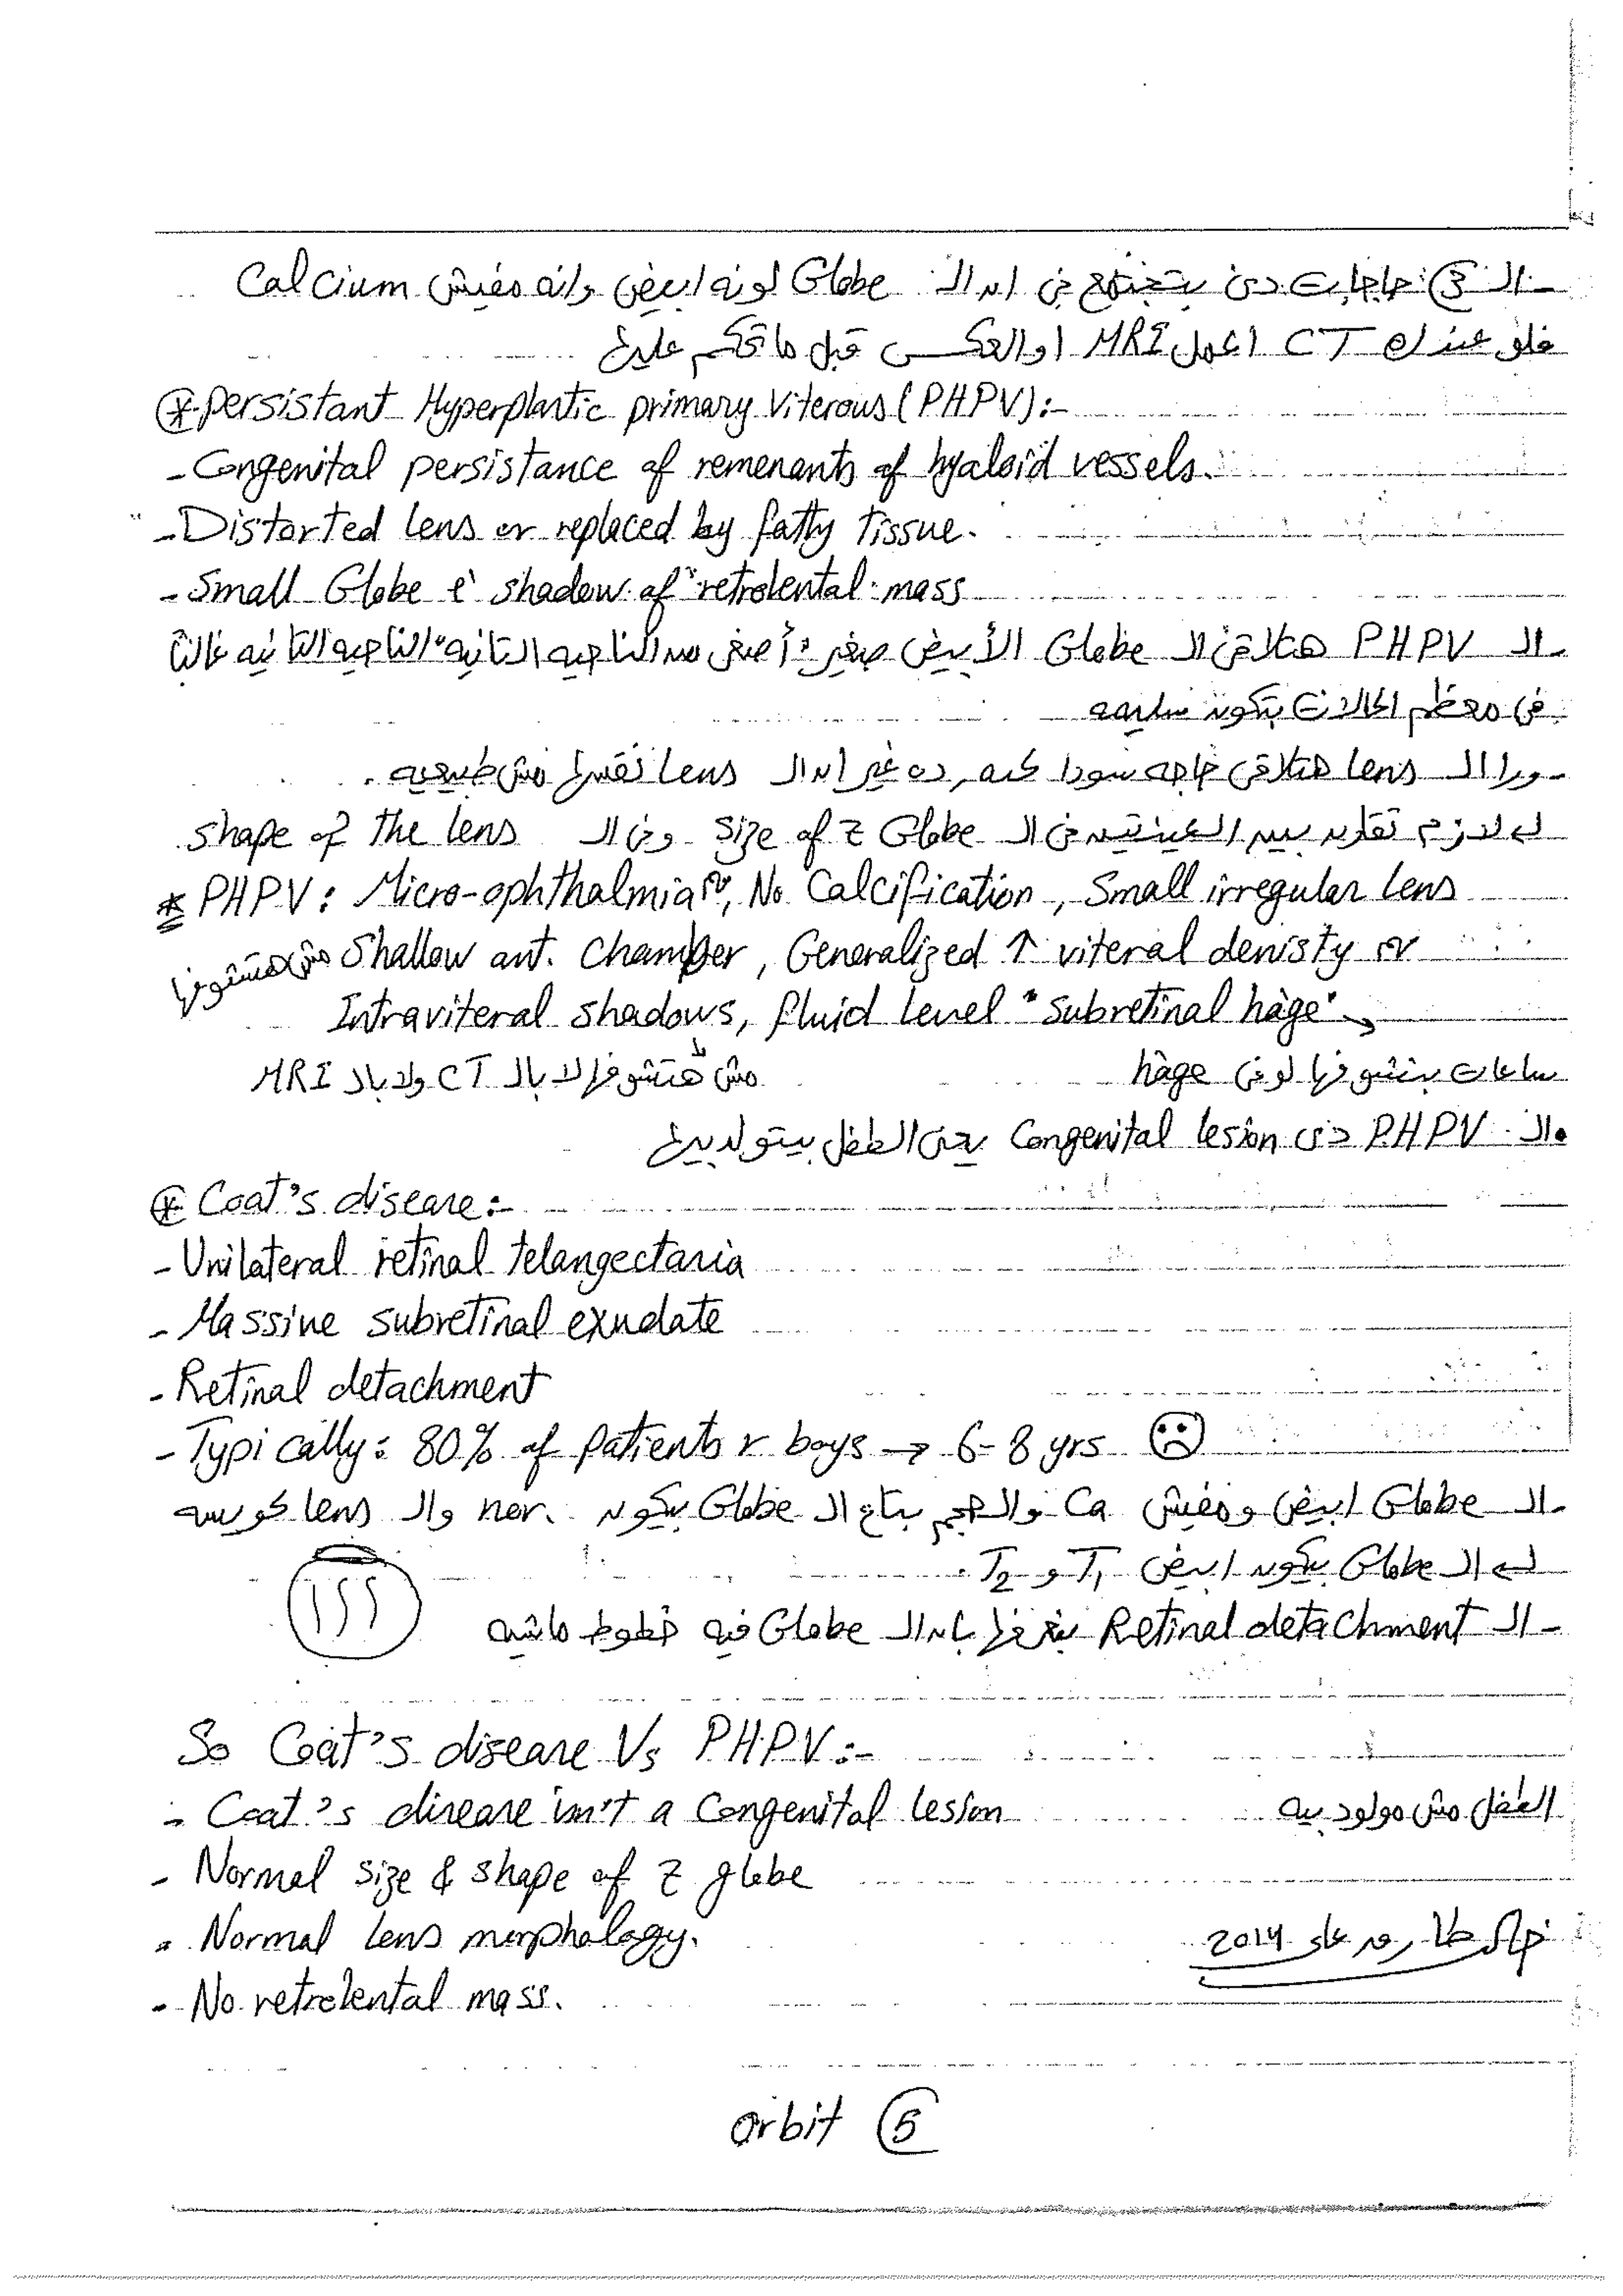 - الـ ③ حاجات دى بتجتمع فى ان الـ Globe لونه ابيض وانه مفيش Calcium
فلو عندك CT اعمل MRI او العكس قبل ما تحكم عليها
* persistant Hyperplastic primary Viterous (PHPV):-
- Congenital persistance of remenants of hyaloid vessels.
- Distorted lens or replaced by fatty tissue.
- Small Globe c̄ shadow of retrolental mass
- الـ PHPV هتلاقى الـ Globe الأبيض صغير "أصغر من الناحيه التانيه" الناحيه التانيه غالبًا
فى معظم الحالات بتكون سليمه
- ورا الـ lens هتلاقى حاجه سودا كده, ده غير ان الـ lens نفسها مش طبيعيه.
↳ لازم تقارن بين العينتين فى الـ size of z Globe وفى الـ shape of the lens
* PHPV: Micro-ophthalmia, No Calcification, Small irregular lens
مش هتشوفها Shallow ant. Chamber, Generalized ↑ viteral denisty
Intraviteral shadows, fluid level "subretinal hage" →
ساعات بنشوفها لو فى hage مش هتشوفها لا بالـ CT ولا بالـ MRI
• الـ PHPV دى Congenital lesion يعنى الطفل بيتولد بيها
* Coat's disease:-
- Unilateral retinal telangectaria
- Massive subretinal exudate
- Retinal detachment
- Typically: 80% of patients r boys → 6-8 yrs ☹
- الـ Globe ابيض ومفيش Ca والحجم بتاع الـ Globe بيكون nor. والـ lens كويسه
↳ الـ Globe بيكون ابيض T1 و T2.
- الـ Retinal detachment بنعرفها بان الـ Globe فيه خطوط ماشيه
So Coat's disease Vs PHPV:-
- Coat's disease isn't a Congenital lesion الطفل مش مولود بيه
- Normal size & shape of z globe
- Normal lens morphology.
طارق على 2014
- No retrolental mass.
orbit ⑤